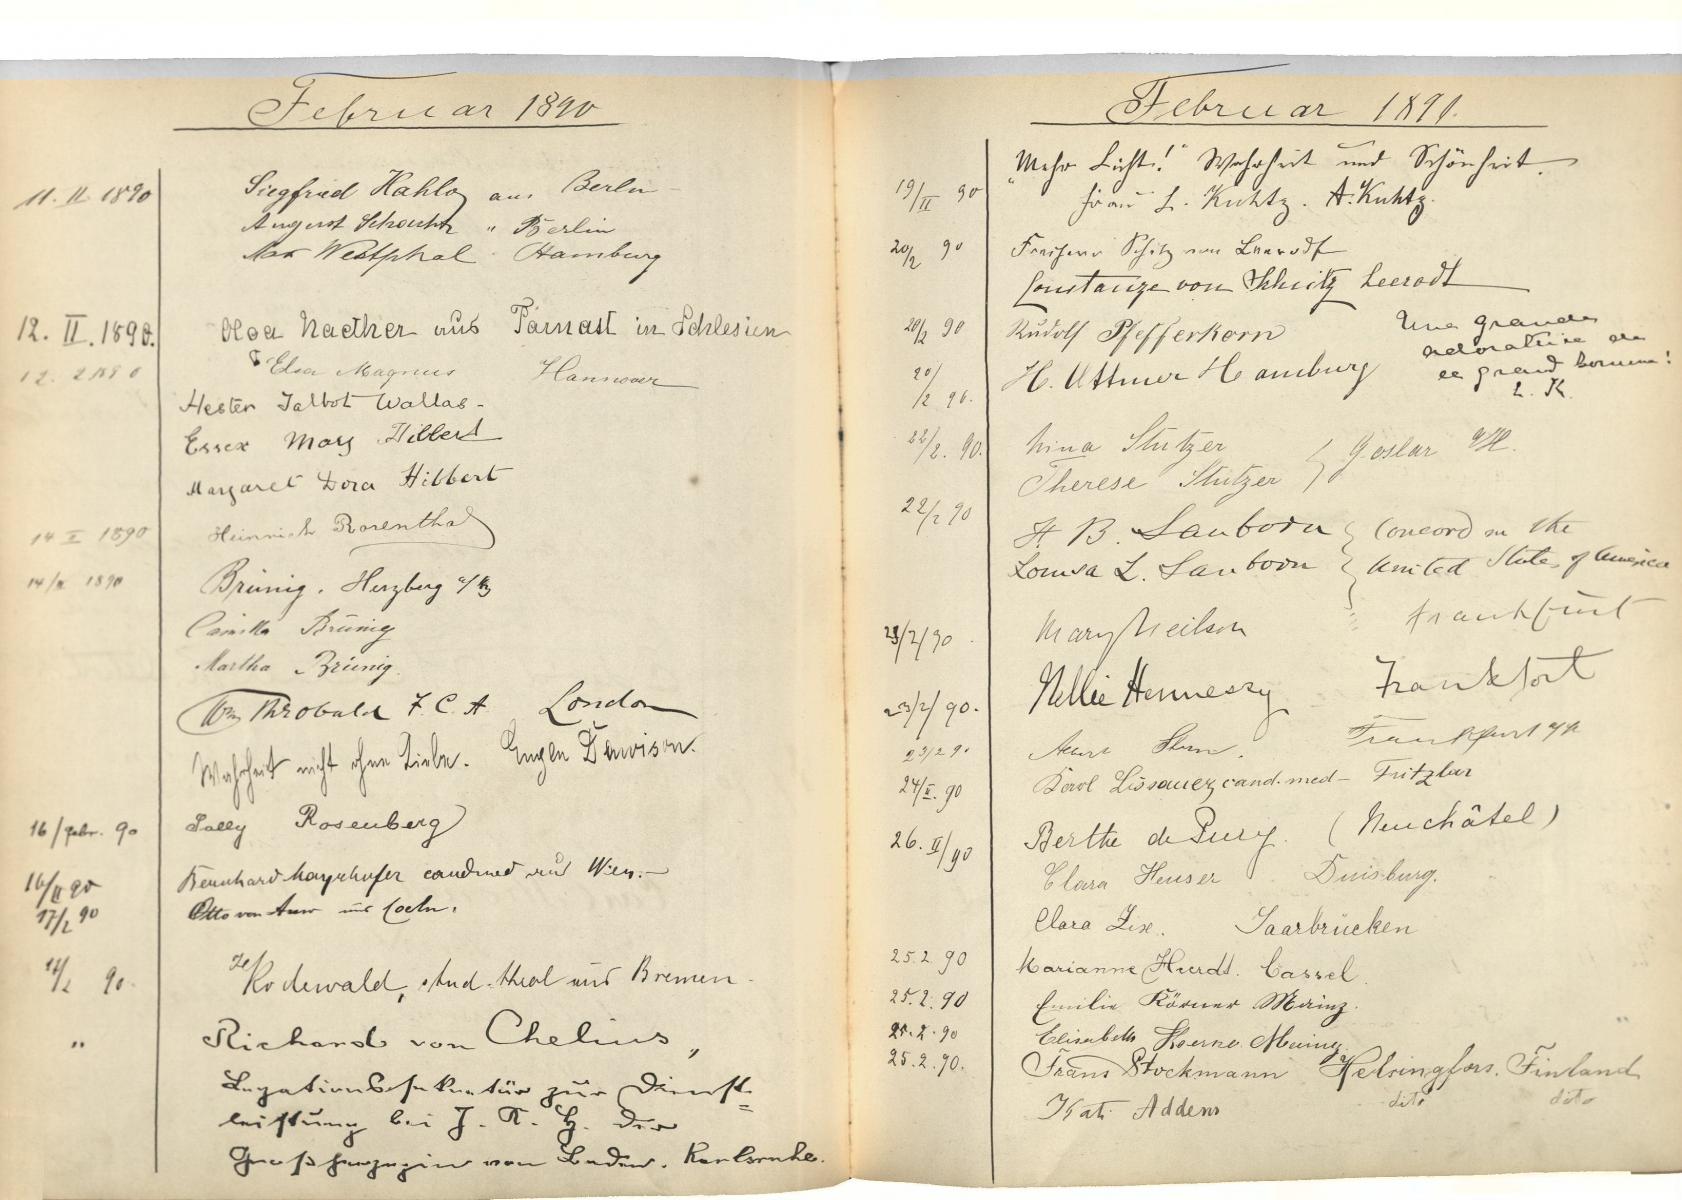 Februar 1890
11. II. 1890 Siegfried Kahlo aus Berlin
August " Berlin
Max Westphal Hamburg
12. II. 1890. Olga Naether aus Parnast in Schlesien
12. 2. 1890 Elsa Magnus Hannover
Hester Talbot Wallas
Essex Mary Hibbert
Margaret Dora Hibbert
14 II 1890 Heinrich Rosenthal
14/II 1890 Brünig. Herzberg a/Hz
Camilla Brünig
Martha Brünig
Wm Throbald F. C. A London
Wahrheit nicht ohne Liebe. Eugen Davison.
16/Febr. 90 Sally Rosenberg
16/II 90 Bernhard Mayrhofer cand med aus Wien.
17/2 90 Otto von Auw aus Coeln.
90 Rodewald, stud. theol aus Bremen
" Richard von Chelius,
Legationssekretär zur Dienst=
leistung bei I. K. H. der
Großherzogin von Baden. Karlsruhe.
Februar 1890.
"Mehr Licht!" Wahrheit und Schönheit.
19/II 90 Frau L. Kuhtz. A. Kuhtz.
20/2 90 Freiherr Schütz von Leerodt
Constanze von Schütz Leerodt
20/2 90 Rudolf Pfefferkorn
Une grande
adoratrice de
ce grand homme!
L. K.
20/2 90. H. Uttmer Hamburg
22/2. 90. Nina Stutzer
Therese Stutzer } Goslar a/H.
22/2 90 F. B. Sanborn } Concord in the
Louisa L. Sanborn } United States of America
23/2/90 Mary Neilson Frankfurt
23/2/90. Nellie Hennessy Frankfort
23/2 90 Stern. Frankfurt a/M
24/II. 90 Lissauer, cand. med Fritzlar
26. II/90 Berthe de Pury. (Neuchâtel)
Clara Heuser Duisburg.
Clara Zix. Saarbrücken
25. 2. 90 Marianne Hurdt. Cassel
25. 2. 90 Emilie Körner Mainz.
25. 2. 90 Elisabeth Koerner Mainz.
25. 2. 90. Frans Stockmann Helsingfors. Finland
Kati Addens dito dito